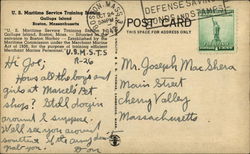 U. S. Maritime Service Training Station
Gallops Island
Boston, Massachusetts
"U. S. Maritime Service Training Station,
Gallops Island, Boston, Mass.
entrance to Boston Harbor
the Maritime Commission under the Merchant Marine
Act of 1936, for the purpose of training efficient
Merchant Marine Personnel."
BOSTON, MASS.
DEFENSE SAVINGS
BONDS STAMPS
POST CARD
THIS SPACE FOR ADDRESS ONLY
U.S.M.S.T.S
R-26
Hi Joe,
Hows all the boys and
girls at Marcel's Pet
shop? Still dogin
around I suppose.
Well see you around
sometime if the army don't
grab you. Don
Mr. Joseph MacShera
Main Street
Cherry Valley
Massachusetts